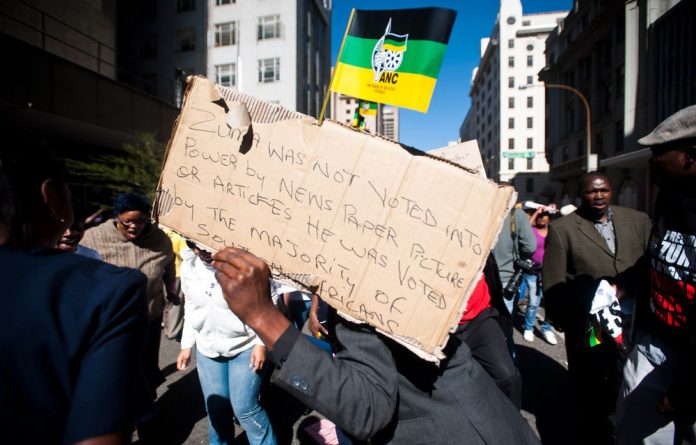 ANC
ZUMA WAS NOT VOTED INTO
POWER BY NEWS PAPER PICTURE
OR ARTICFES HE WAS VOTED
BY THE MAJORITY OF
SOUTH AFRICANS
ZUM